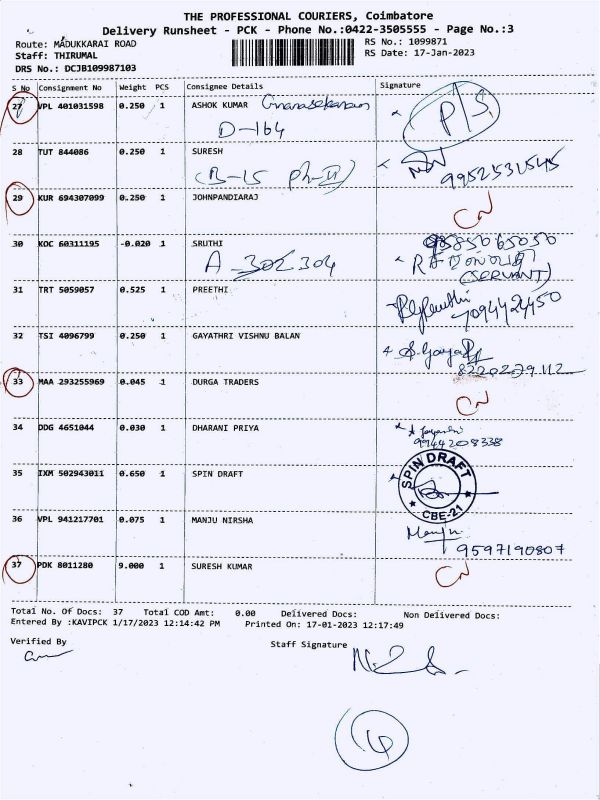 THE PROFESSIONAL COURIERS, Coimbatore
Delivery Runsheet - PCK - Phone No.:0422-3505555 - Page No.:3
Route: MADUKKARAI ROAD
RS No.: 1099871
Staff: THIRUMAL
RS Date: 17-Jan-2023
DRS No.: DCJB109987103
S No Consignment No Weight PCS Consignee Details Signature
27 VPL 401031598 0.250 1 ASHOK KUMAR Gnanasekaran P/S
D-164
28 TUT 844086 0.250 1 SURESH
(B-15 Ph-II) 9952531545
29 KUR 694307099 0.250 1 JOHNPANDIARAJ CN
30 KOC 60311195 -0.020 1 SRUTHI 9585065050
A 302 304
(SERVANT)
31 TRT 5059057 0.525 1 PREETHI
7094424450
32 TSI 4096799 0.250 1 GAYATHRI VISHNU BALAN
8220279112
33 MAA 293255969 0.045 1 DURGA TRADERS CN
34 DDG 4651044 0.030 1 DHARANI PRIYA
9944208338
35 IXM 502943011 0.650 1 SPIN DRAFT
SPIN DRAFT
CBE-21
36 VPL 941217701 0.075 1 MANJU NIRSHA Manju
9597190807
37 PDK 8011280 9.000 1 SURESH KUMAR CN
Total No. Of Docs: 37 Total COD Amt: 0.00 Delivered Docs: Non Delivered Docs:
Entered By :KAVIPCK 1/17/2023 12:14:42 PM Printed On: 17-01-2023 12:17:49
Verified By
Staff Signature